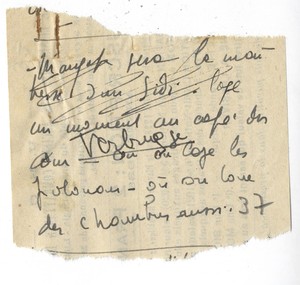 - Margot sera la maî
tresse d'un Sidi. loge
un moment au café des
Verbrugge
où on loge les
polonais - où on loue
des chambres aussi. 37